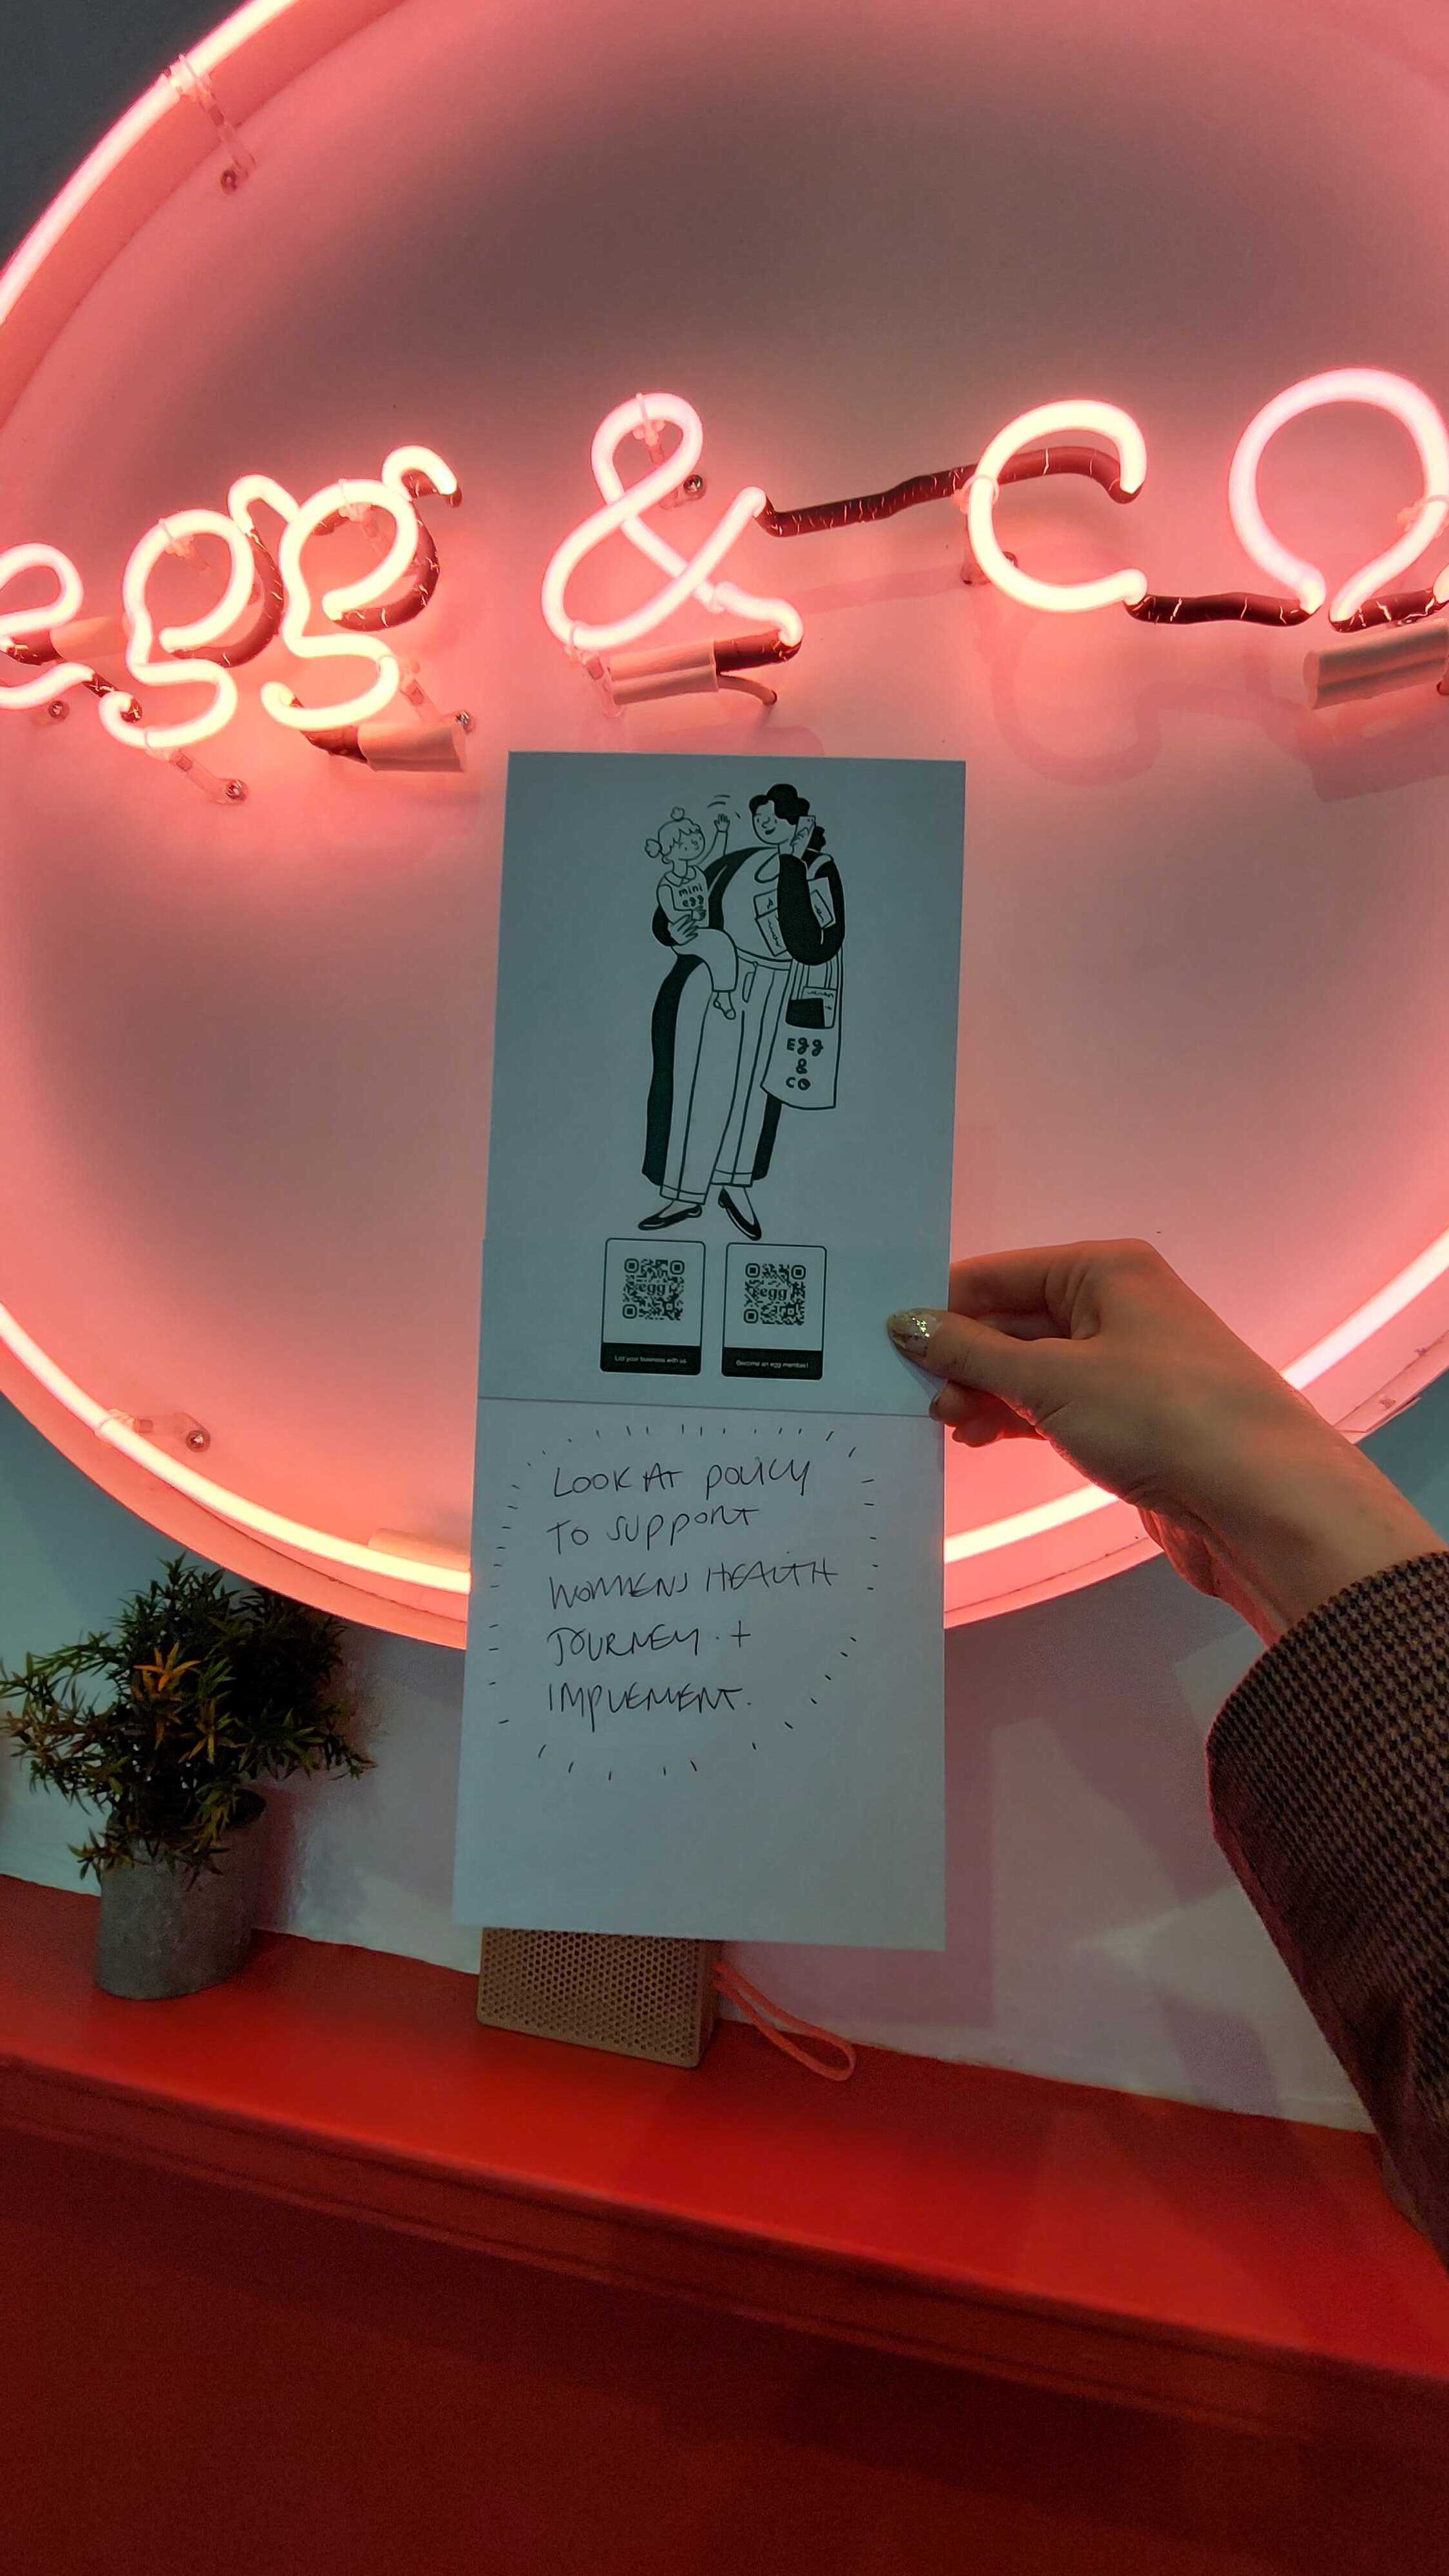 egg & co
mini
egg
Egg
&
CO
egg
egg
List your business with us
Become an egg member!
LOOK AT POLICY
TO SUPPORT
WOMENS HEALTH
JOURNEY +
IMPLEMENT.